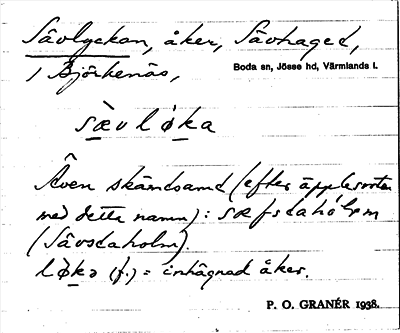 Sävlyckan, åker, Sävhaged,
i Björkenäs,
Boda sn, Jösse hd, Värmlands l.
sævløka
Även skämtsamt (efter äpplesorten
med detta namn): sæfstahólm
(Sävstaholm).
løkə (f.) = inhägnad åker.
P. O. GRANÉR 1938.